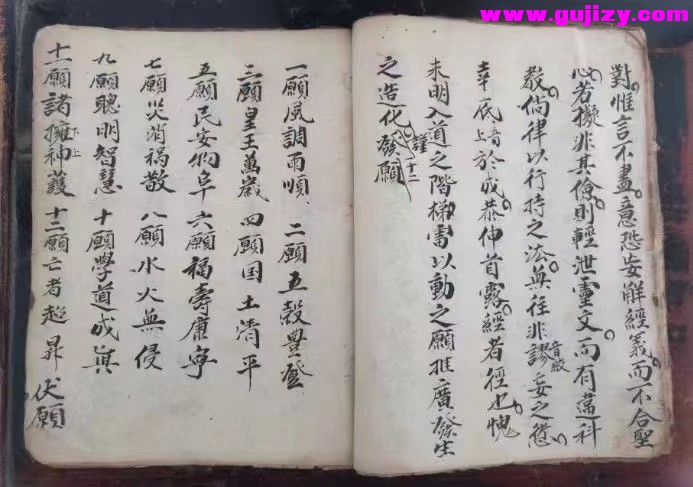 www.gujizy.com
對惟言不盡意恐妄解經義而不合聖
心若擬非其儉則輕泄靈文而有違科
教倘律以行持之法無往非謬妄之愆
幸底於成恭伸首露經者徑也愧
未明入道之階梯書以動之願推廣發生
之造化謹發十二願
一願風調雨順 二願五穀豊登
三願皇王萬歲 四願国土清平
五願民安物阜 六願福壽康寧
七願災消禍散 八願水火無侵
九願聰明智慧 十願學道成真
十一願諸擁神護 十二願亡者超昇 伏願